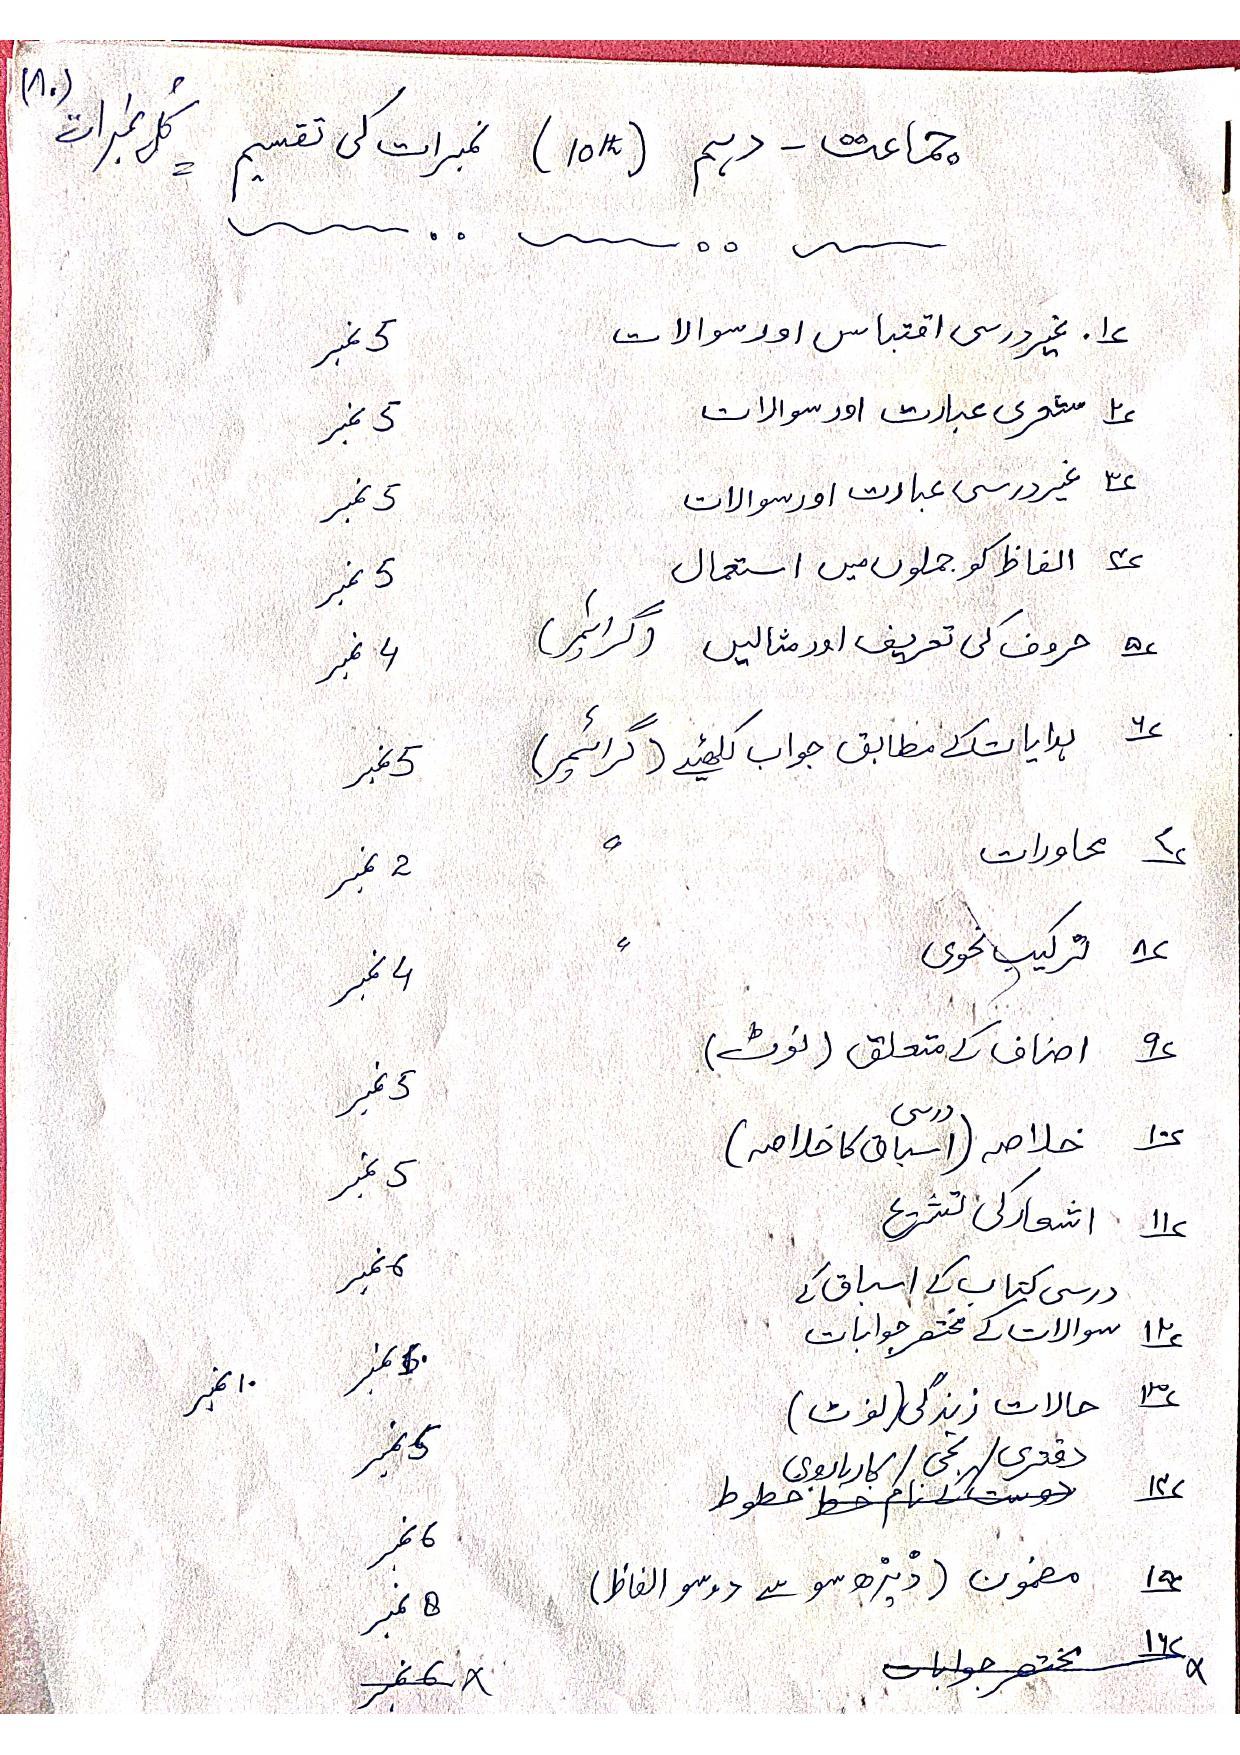 جماعت - دہم (10th) نمبرات کی تقسیم = کُل نمبرات (۸۰)
۱؎. غیر درسی اقتباس اور سوالات 5 نمبر
۲؎ شعری عبارت اور سوالات 5 نمبر
۳؎ غیر درسی عبارت اور سوالات 5 نمبر
۴؎ الفاظ کو جملوں میں استعمال 5 نمبر
۵؎ حروف کی تعریف اور مثالیں (گرائمر) 4 نمبر
۶؎ ہدایات کے مطابق جواب لکھئیے (گرائمر) 5 نمبر
۷؎ محاورات " 2 نمبر
۸؎ ترکیب نحوی " 4 نمبر
۹؎ اصناف کے متعلق (نوٹ) 5 نمبر
۱۰؎ خلاصہ (درسی اسباق کا خلاصہ) 5 نمبر
۱۱؎ اشعار کی تشریح 6 نمبر
درسی کتاب کے اسباق کے
۱۲؎ سوالات کے مختصر جوابات ۱۰ نمبر
۱۳؎ حالات زندگی (نوٹ) 5 نمبر
دفتری / نجی / کاروباری
۱۴؎ دوست کے نام خط خطوط 6 نمبر
۱۵؎ مضمون (ڈیڑھ سو سے دو سو الفاظ) 8 نمبر
۱۶؎ مختصر جوابات 6 نمبر